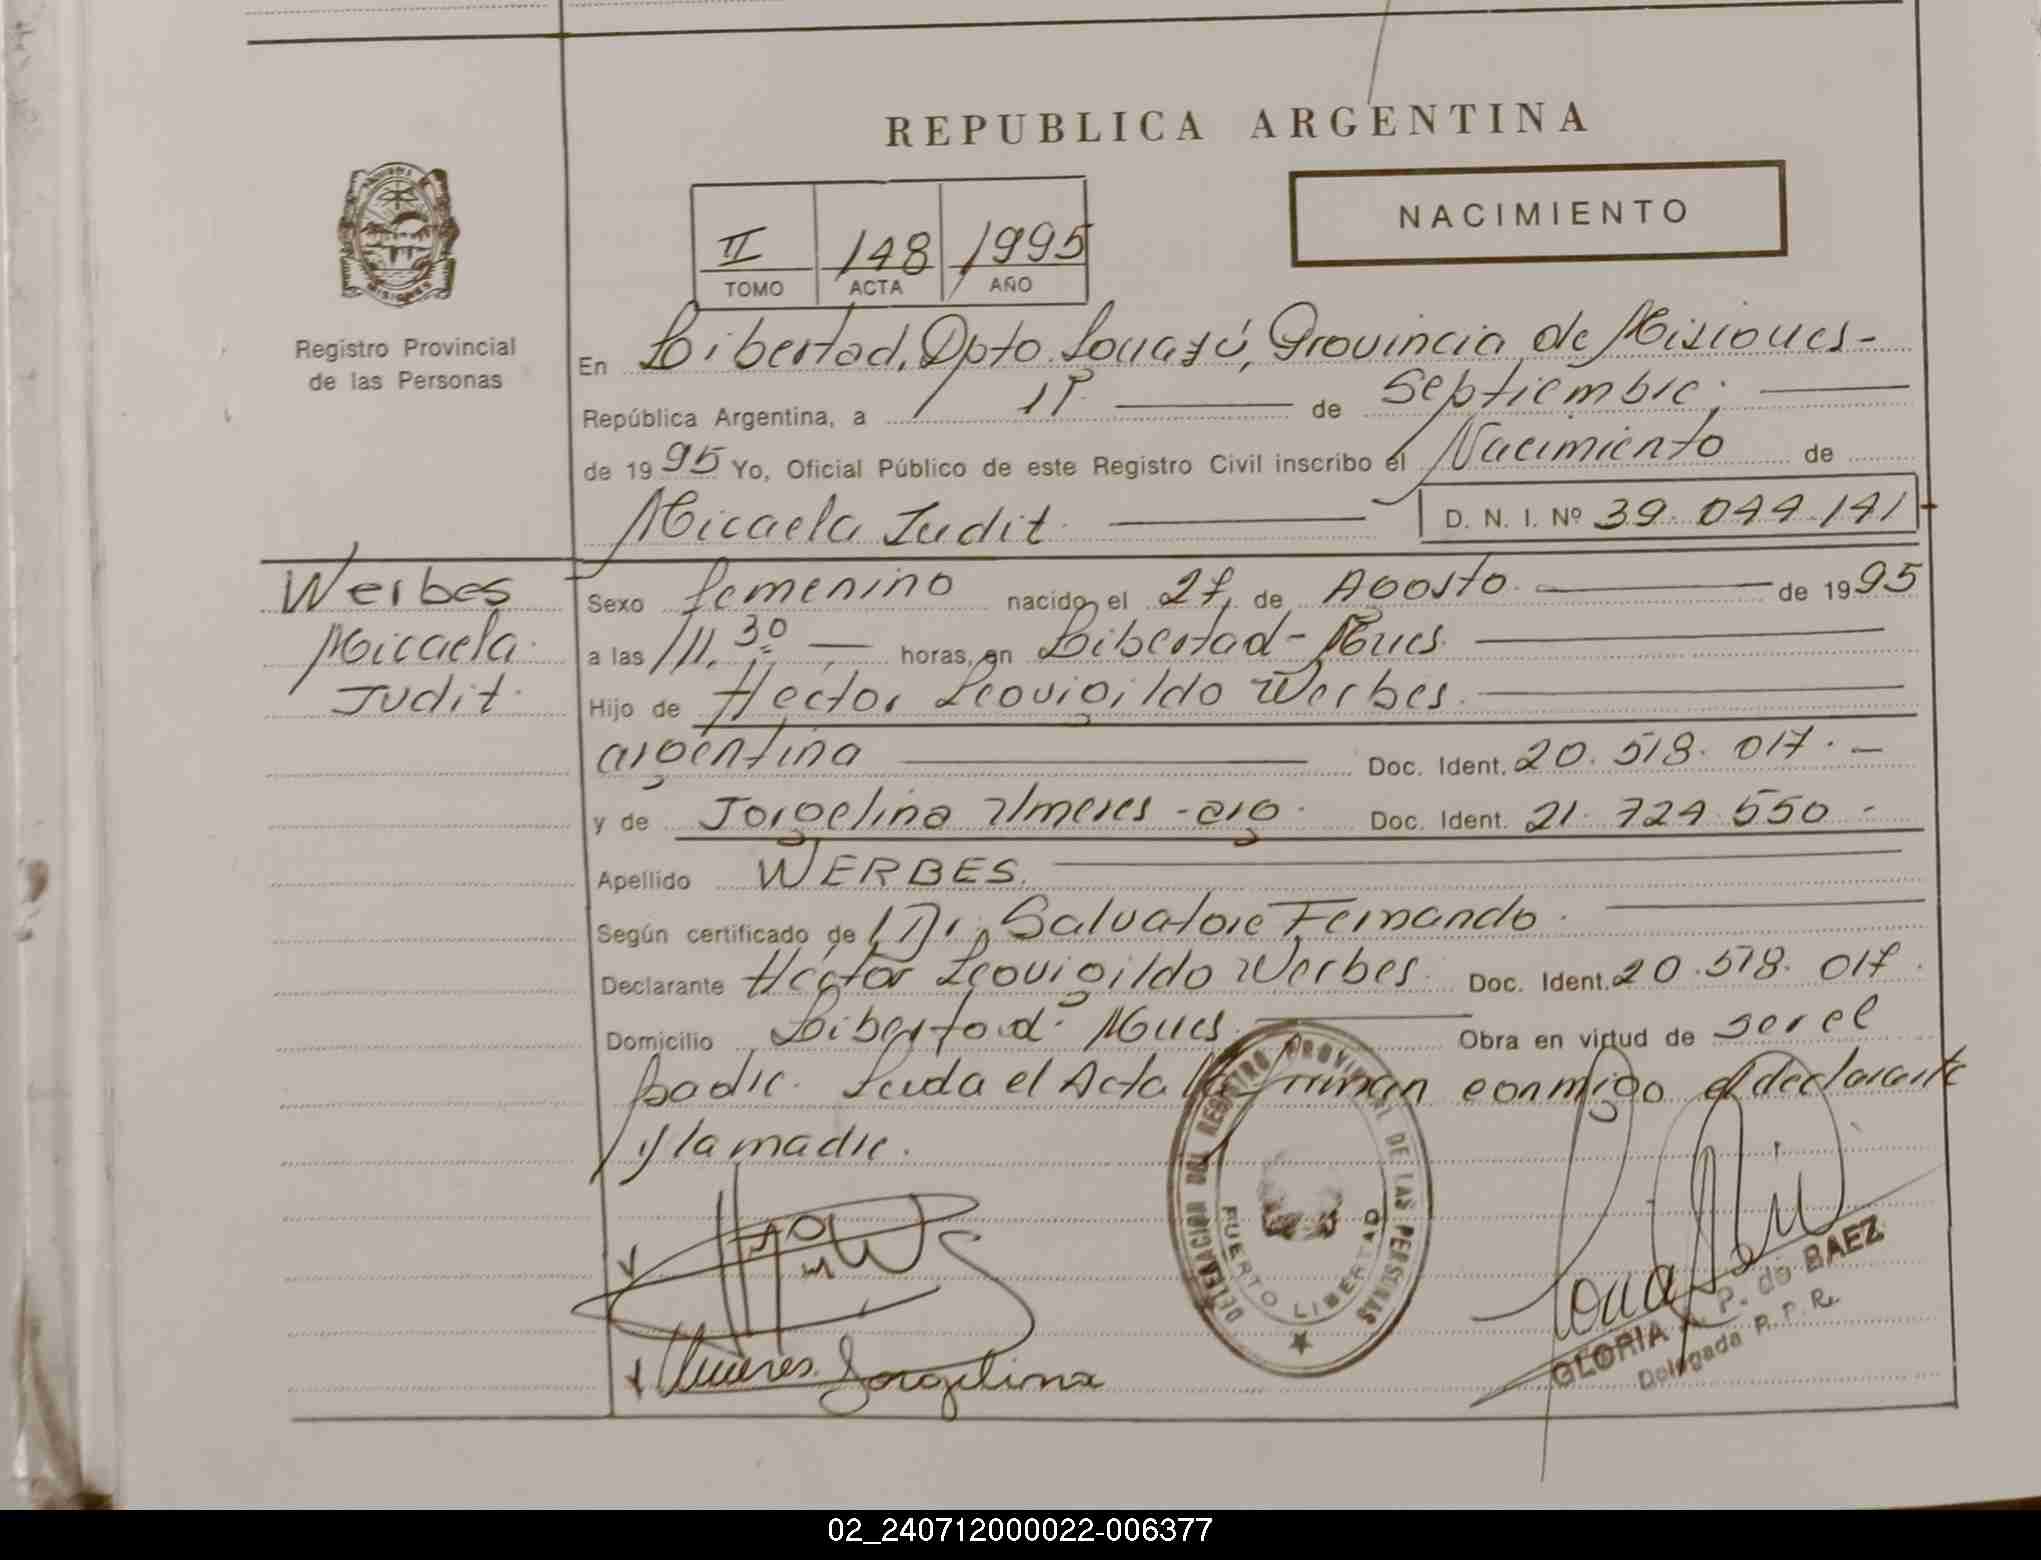 REPUBLICA ARGENTINA
NACIMIENTO
II 148 1995
TOMO ACTA AÑO
MISIONES
Registro Provincial
de las Personas
En Libertad, Dpto. Iguazú, Provincia de Misiones-
República Argentina, a 1º de Septiembre.
de 1995 Yo, Oficial Público de este Registro Civil inscribo el Nacimiento de
Micaela Judit. D. N. I. Nº 39.044.141
Werbes
Micaela
Judit.
Sexo femenino nacido el 27 de Agosto de 1995
a las 11.30 horas, en Libertad- Mnes.
Hijo de Hector Leovigildo Werbes.
argentina Doc. Ident. 20.518.017.-
y de Jorgelina Umeres -arg. Doc. Ident. 21.724.550-
Apellido WERBES.
Según certificado de Dr. Salvatore Fernando.
Declarante Hector Leovigildo Werbes. Doc. Ident. 20.518.017.
Domicilio Libertad- Mnes. Obra en virtud de ser el
padre. Leida el Acta la firman conmigo el declarante
y la madre.
DELEGACION DEL REGISTRO PROVINCIAL DE LAS PERSONAS
PUERTO LIBERTAD
Umeres Jorgelina
GLORIA P. de BAEZ
Delegada R. P. P.
02_240712000022-006377